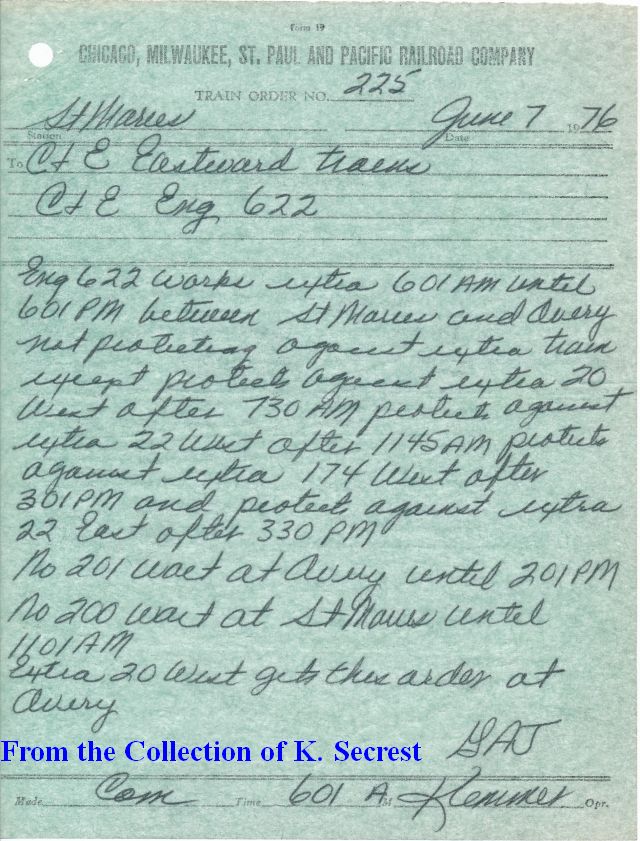 Form 19
CHICAGO, MILWAUKEE, ST. PAUL AND PACIFIC RAILROAD COMPANY
TRAIN ORDER NO. 225
St Maries June 7 1976
Station Date
To C+E Eastward trains
C+E Eng 622
Eng 622 works extra 601 AM until
601 PM between St Maries and Avery
not protecting against extra train
except protects against extra 20
West after 730 AM protects against
extra 22 West after 1145 AM protects
against extra 174 West after
301 PM and protects against extra
22 East after 330 PM
No 201 wait at Avery until 201 PM
No 200 wait at St Maries until
1101 AM
Extra 20 West gets this order at
Avery
From the Collection of K. Secrest
Made Com Time 601 A M Opr.